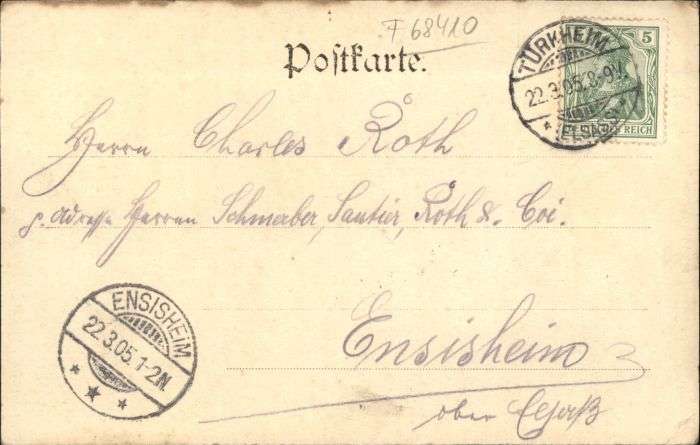 F 68410
Postkarte.
TÜRKHEIM
22.3.05. 8-9V.
* (ELSASS) *
5
REICH
Herrn Charles Roth
p. Adresse Herren Schmerber, Santier, Roth & Coi.
ENSISHEIM
22.3.05. 1-2N.
Ensisheim
ober Elsaß